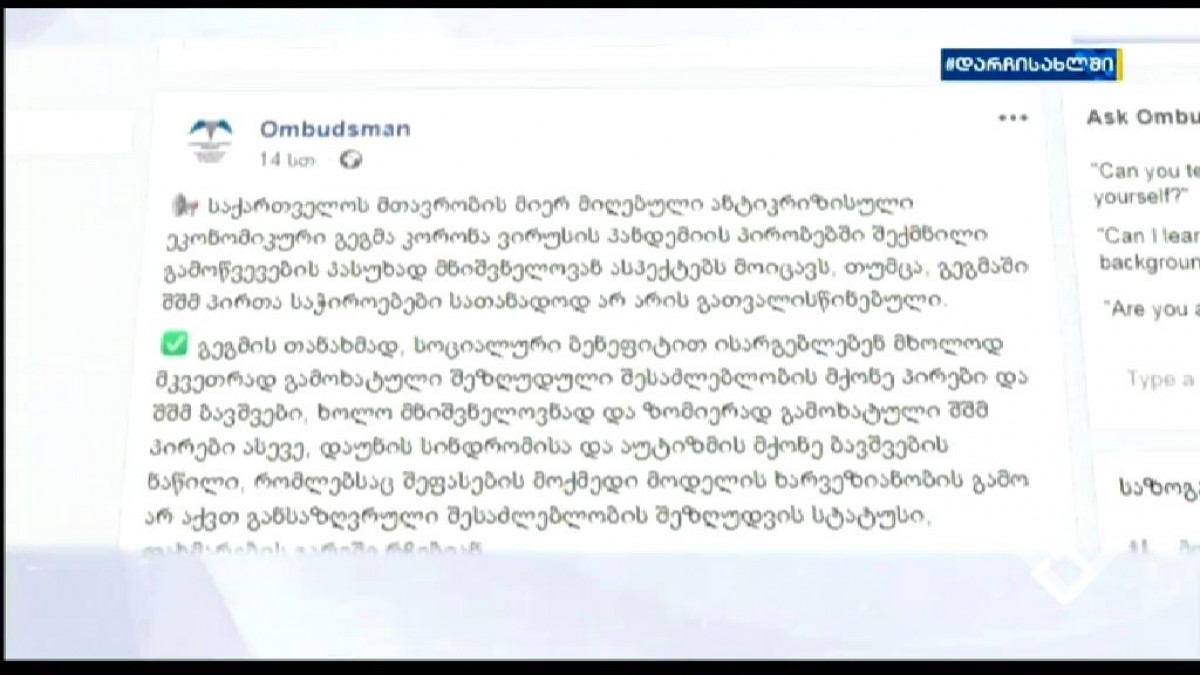 #ᲓᲐᲠᲩᲘᲡᲐᲮᲚᲨᲘ
Ombudsman
14 სთ
საქართველოს მთავრობის მიერ მიღებული ანტიკრიზისული
ეკონომიკური გეგმა კორონა ვირუსის პანდემიის პირობებში შექმნილი
გამოწვევების პასუხად მნიშვნელოვან ასპექტებს მოიცავს, თუმცა, გეგმაში
შშმ პირთა საჭიროებები სათანადოდ არ არის გათვალისწინებული.
გეგმის თანახმად, სოციალური ბენეფიტით ისარგებლებენ მხოლოდ
მკვეთრად გამოხატული შეზღუდული შესაძლებლობის მქონე პირები და
შშმ ბავშვები, ხოლო მნიშვნელოვნად და ზომიერად გამოხატული შშმ
პირები ასევე, დაუნის სინდრომისა და აუტიზმის მქონე ბავშვების
ნაწილი, რომლებსაც შეფასების მოქმედი მოდელის ხარვეზიანობის გამო
არ აქვთ განსაზღვრული შესაძლებლობის შეზღუდვის სტატუსი,
Ask Ombu
"Can you te
yourself?"
"Can I lear
backgroun
"Are you a
Type a
საზოგა